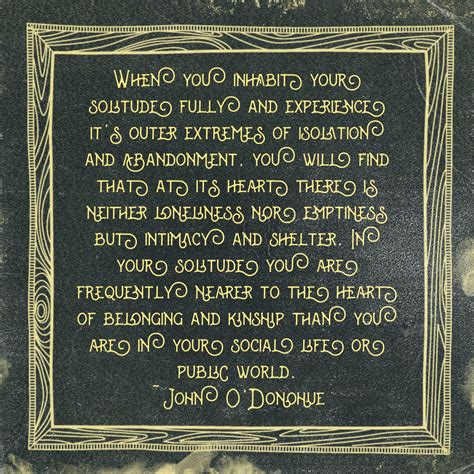 When you inhabit your
solitude fully and experience
it's outer extremes of isolation
and abandonment, you will find
that at its heart there is
neither loneliness nor emptiness
but intimacy and shelter. In
your solitude you are
frequently nearer to the heart
of belonging and kinship than you
are in your social life or
public world.
~John O'Donohue